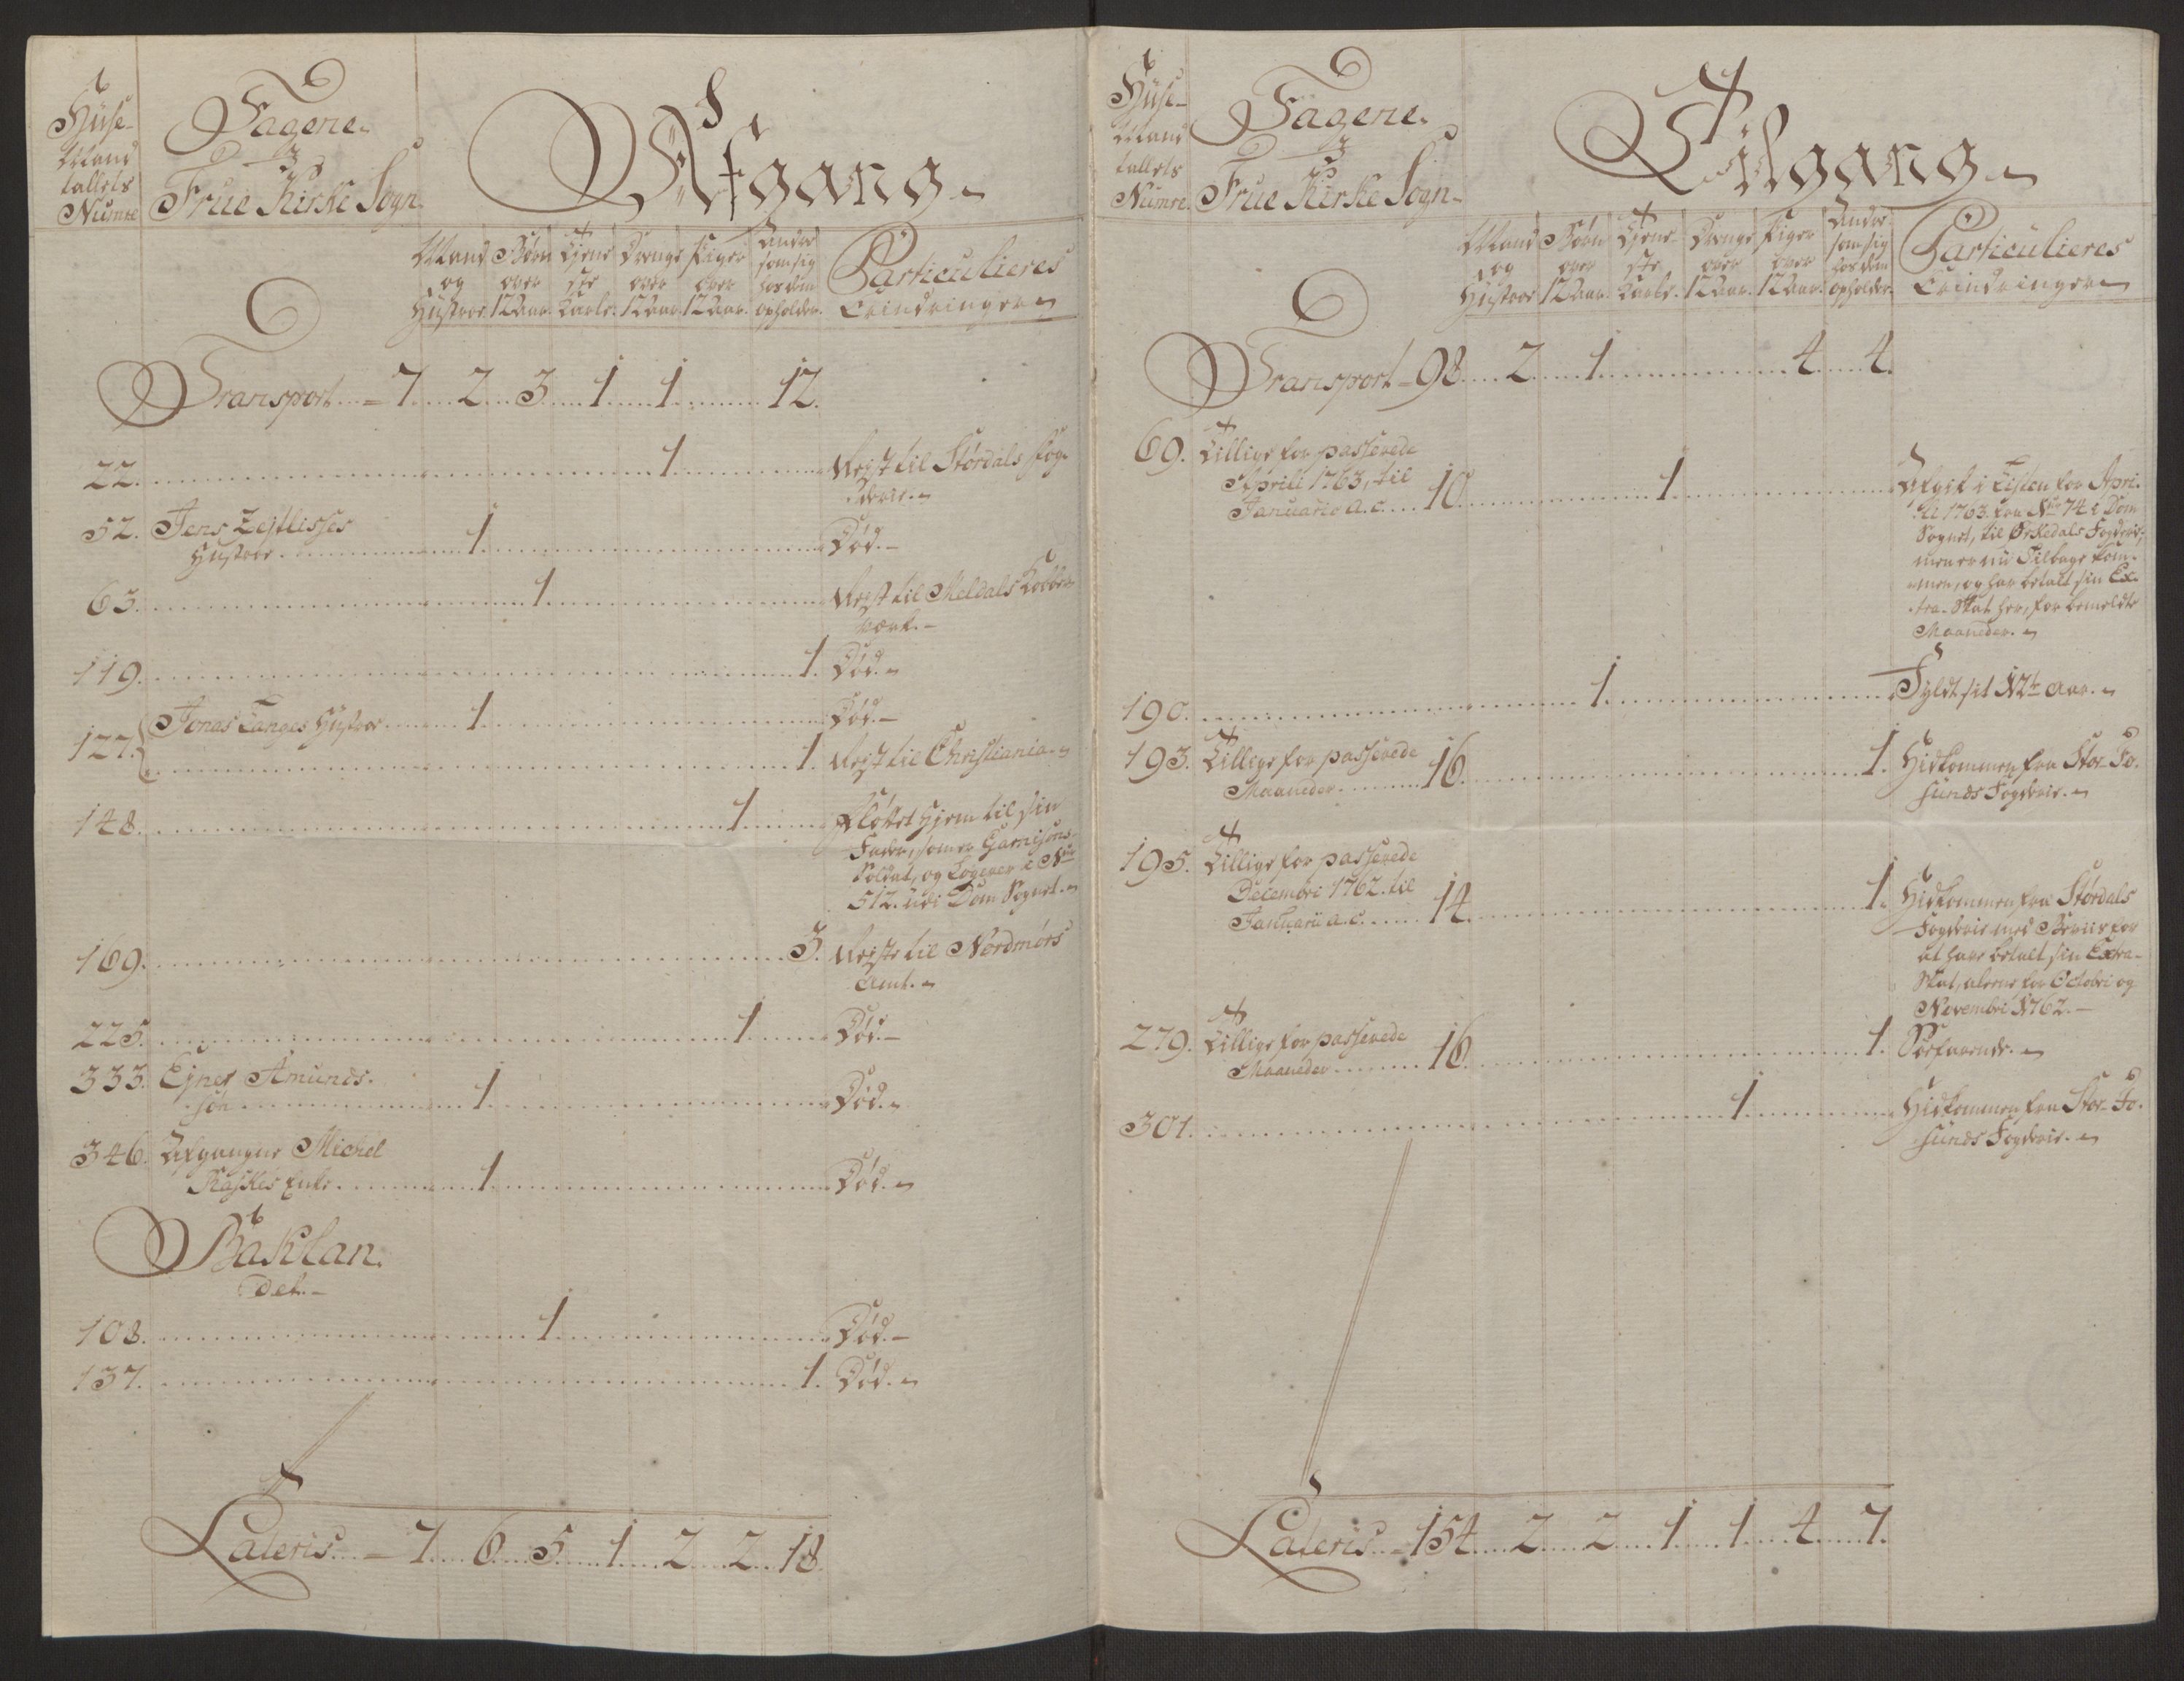 Huse-
Mand
tallets
Numre
Fagene
i
Frue Kirke Sogn.
Afgang.
Mand
og
Hustroe
Børn
over
12 Aar.
Tjene
ste
Karle.
Drenge
over
12 Aar.
Piger
over
12 Aar.
Andre
som sig
hos dem
opholder.
Particulieres
Erindringer
Transport = 7. 2. 3. 1. 1. 12.
22. 1. Rejst til Størdals Fog-
derie.
52. Jens Zejtlisses
Hustroe. 1. Død.
63. 1. Rejst til Meldals Kobber
Værk.
119. 1. Død.
127. Jonas Langes Hustroe 1. Død.
1. Rejst til Christiania.
148. 1. Fløttet hjem til sin
Fader, som er Garnisons-
Soldat, og Logerer i Nr.
512. udi Dom Sognet.
169. 3. Rejste til Nordmørs
Amt.
225. 1. Død.
333. Ejner Amunds-
søn 1. Død.
346. Afgangne Michel
Raskes Enke. 1. Død.
Baklan-
det.
108. 1. Død.
137. 1. Død.
Lateris = 7. 6. 5. 1. 2. 2. 18.
Huse-
Mand
tallets
Numre.
Fagene.
i
Frue Kirke Sogn.
Tilgang.
Mand
og
Hustroe
Børn
over
12 Aar.
Tjene-
ste
Karle.
Drenge
over
12 Aar.
Piger
over
12 Aar.
Andre
som sig
hos dem
opholder.
Particulieres
Erindringer
Transport = 98. 2. 1. 4. 4.
69. Tillige for passerede
Aprili 1763, til
Januario a. c. 10. 1. Afgik i Listen for Apri-
li 1763. fra Nr. 74 i Dom
Sognet, til Ørkedals Fogderie,
men er nu Tilbage kom-
men, og har betalt sin Ex-
tra-Skat her, for bemeldte
Maaneder.
190. 1. Fyldt sit 12te Aar.
193. Tillige for passerede
Maaneder 16. 1. Hidkommen fra Stor-Fo-
sunds Fogderie.
195. Tillige for passerede
Decembri 1762. til
Januarii a. c. 14. 1. Hidkommen fra Størdals
Fogderie med Beviis for
at have betalt sin Extra-
Skat, alene for Octobri og
Novembri 1762.
279. Tillige for passerede
Maaneder 16. 1. Søefarende.
301. 1. Hidkommen fra Stor-Fo-
sunds Fogderie.
Lateris = 154. 2. 2. 1. 1. 4. 7.